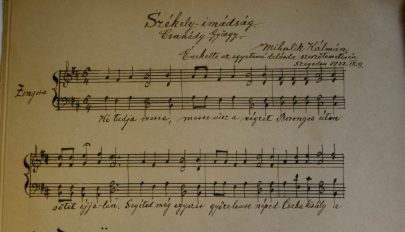 Székely-imádság
Csanády György
Mihalik Kálmán
Énekelte az egyetemi
Szegeden 1922.
Zongora
Ki tudja merre, merre visz a végzet Borongós úton
sötét éjjelen. Segítsd még egyszer győzelemre néped Csaba király a